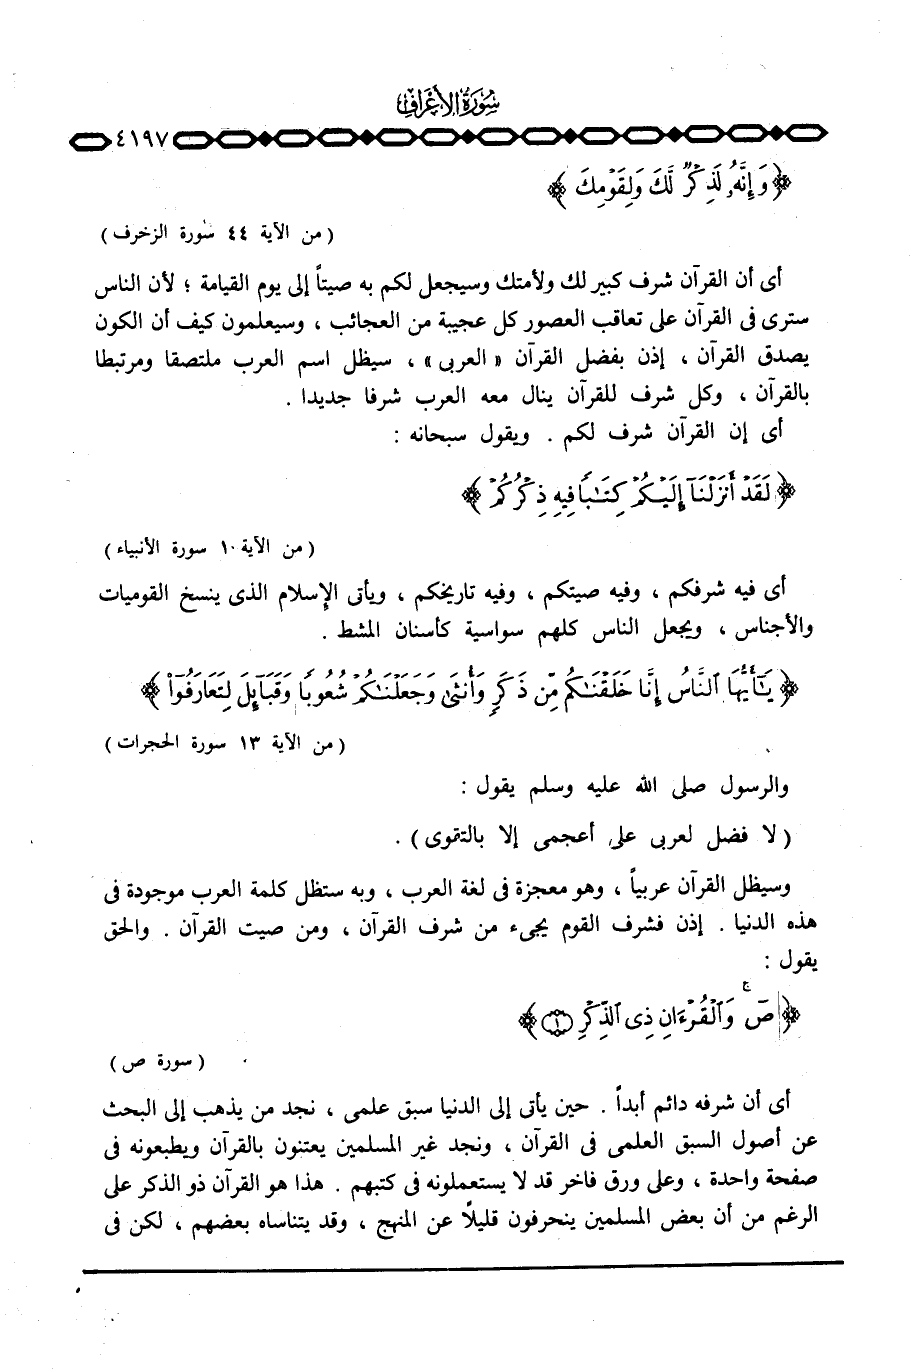 سُورَةُ الأَعْرَافِ
٤١٩٧
﴿ وَإِنَّهُۥ لَذِكْرٌ لَّكَ وَلِقَوْمِكَ ﴾
( من الآية ٤٤ سورة الزخرف )
أى أن القرآن شرف كبير لك ولأمتك وسيجعل لكم به صيتاً إلى يوم القيامة ؛ لأن الناس
سترى فى القرآن على تعاقب العصور كل عجيبة من العجائب ، وسيعلمون كيف أن الكون
يصدق القرآن ، إذن بفضل القرآن « العربى » ، سيظل اسم العرب ملتصقا ومرتبطا
بالقرآن ، وكل شرف للقرآن ينال معه العرب شرفا جديدا .
أى إن القرآن شرف لكم . ويقول سبحانه :
﴿ لَقَدْ أَنزَلْنَآ إِلَيْكُمْ كِتَٰبًا فِيهِ ذِكْرُكُمْ ﴾
( من الآية ١٠ سورة الأنبياء )
أى فيه شرفكم ، وفيه صيتكم ، وفيه تاريخكم ، ويأتى الإسلام الذى ينسخ القوميات
والأجناس ، ويجعل الناس كلهم سواسية كأسنان المشط .
﴿ يَٰٓأَيُّهَا ٱلنَّاسُ إِنَّا خَلَقْنَٰكُم مِّن ذَكَرٍ وَأُنثَىٰ وَجَعَلْنَٰكُمْ شُعُوبًا وَقَبَآئِلَ لِتَعَارَفُوٓا۟ ﴾
( من الآية ١٣ سورة الحجرات )
والرسول صلى الله عليه وسلم يقول :
( لا فضل لعربى على أعجمى إلا بالتقوى ) .
وسيظل القرآن عربياً ، وهو معجزة فى لغة العرب ، وبه ستظل كلمة العرب موجودة فى
هذه الدنيا . إذن فشرف القوم يجىء من شرف القرآن ، ومن صيت القرآن . والحق
يقول :
﴿ صٓ ۚ وَٱلْقُرْءَانِ ذِى ٱلذِّكْرِ ١ ﴾
( سورة ص )
أى أن شرفه دائم أبداً . حين يأتى إلى الدنيا سبق علمى ، نجد من يذهب إلى البحث
عن أصول السبق العلمى فى القرآن ، ونجد غير المسلمين يعتنون بالقرآن ويطبعونه فى
صفحة واحدة ، وعلى ورق فاخر قد لا يستعملونه فى كتبهم . هذا هو القرآن ذو الذكر على
الرغم من أن بعض المسلمين ينحرفون قليلاً عن المنهج ، وقد يتناساه بعضهم ، لكن فى